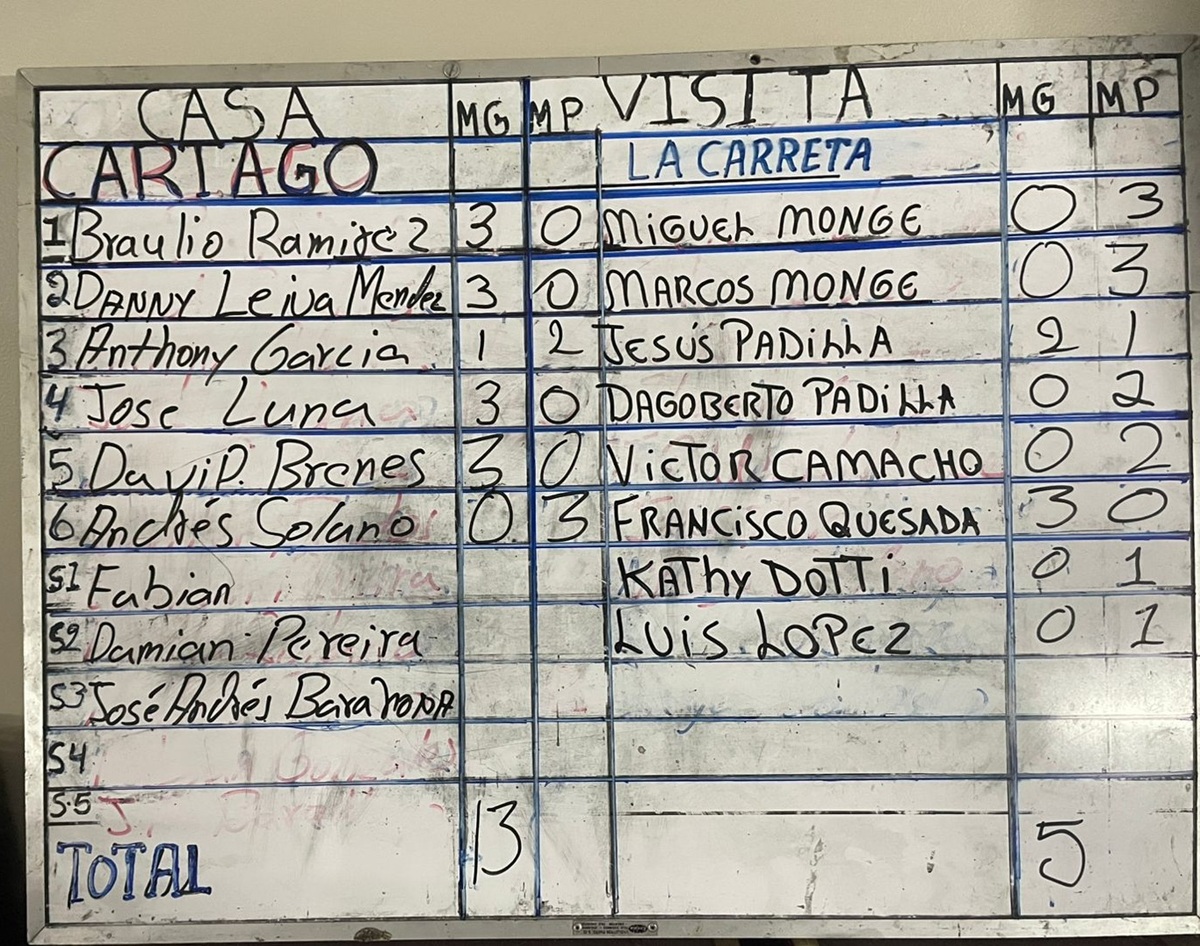 CASA MG MP VISITA MG MP
CARTAGO LA CARRETA
1 Braulio Ramirez 3 0 MiGUEL MONGE 0 3
2 DANNY Leiva Mendez 3 0 MARCOS MONGE 0 3
3 Anthony Garcia 1 2 JESÚS PADiLLA 2 1
4 Jose Luna 3 0 DAGOBERTO PADiLLA 0 2
5 DaviD. Brenes 3 0 VicTOR CAMACHO 0 2
6 Andrés Solano 0 3 FRANCiSCO QUESADA 3 0
S1 Fabian KAThy DOTTi 0 1
S2 Damian Pereira LUiS LOPEZ 0 1
S3 José Andrés BarahonA
S4
S5
TOTAL 13 5